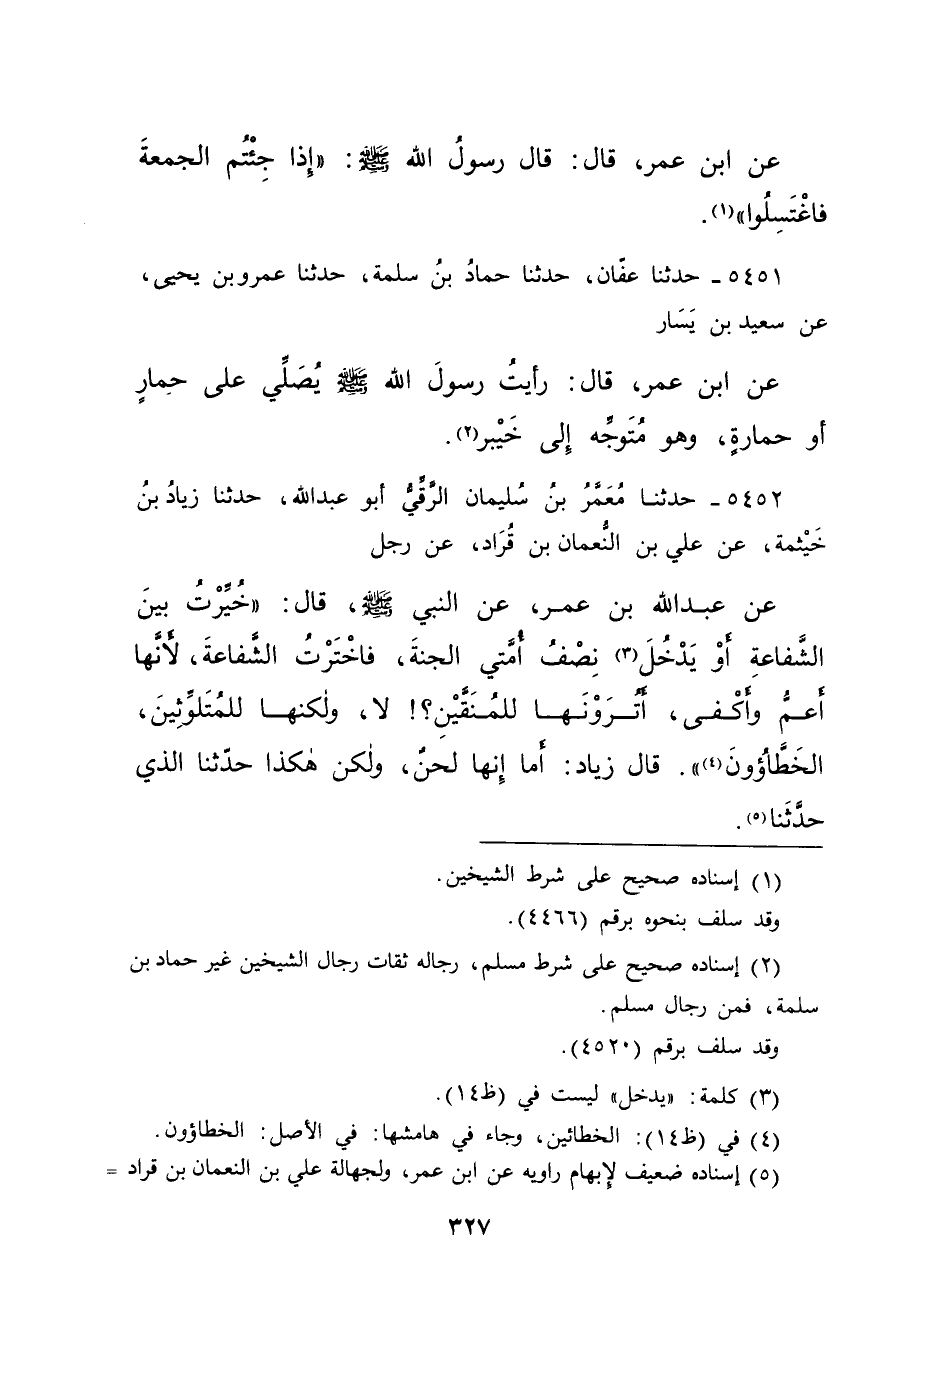 عن ابن عمر، قال: قال رسولُ الله ﷺ: «إِذا جِئْتُم الجمعةَ
فاغْتَسِلُوا»(١).
٥٤٥١ ـ حدثنا عفّان، حدثنا حمادُ بنُ سلمة، حدثنا عمرو بن يحيى،
عن سعيد بن يَسَار
عن ابن عمر، قال: رأيتُ رسولَ الله ﷺ يُصَلِّي على حمارٍ
أو حمارةٍ، وهو مُتَوجِّه إلى خَيْبر(٢).
٥٤٥٢ ـ حدثنا مُعَمَّرُ بنُ سُليمان الرَّقِّيُّ أبو عبدالله، حدثنا زيادُ بنُ
خَيْثمة، عن علي بن النُّعمان بن قُرَاد، عن رجل
عن عبدالله بن عمر، عن النبي ﷺ، قال: «خُيِّرْتُ بينَ
الشَّفاعةِ أَوْ يَدْخُلَ(٣) نِصْفُ أُمَّتي الجنةَ، فاخْتَرْتُ الشَّفاعةَ، لأَنَّها
أَعمُّ وأَكْفى، أَتُرَوْنَها للمُنَقَّيْنِ؟! لا، ولٰكنها للمُتَلوِّثِينَ،
الخَطَّاؤُونَ(٤)». قال زياد: أَما إنها لحنٌ، ولٰكن هٰكذا حدّثنا الذي
حدَّثَنا(٥).
(١) إسناده صحيح على شرط الشيخين.
وقد سلف بنحوه برقم (٤٤٦٦).
(٢) إسناده صحيح على شرط مسلم، رجاله ثقات رجال الشيخين غير حماد بن
سلمة، فمن رجال مسلم.
وقد سلف برقم (٤٥٢٠).
(٣) كلمة: «يدخل» ليست في (ظ١٤).
(٤) في (ظ١٤): الخطائين، وجاء في هامشها: في الأصل: الخطاؤون.
(٥) إسناده ضعيف لإبهام راويه عن ابن عمر، ولجهالة علي بن النعمان بن قراد =
٣٢٧